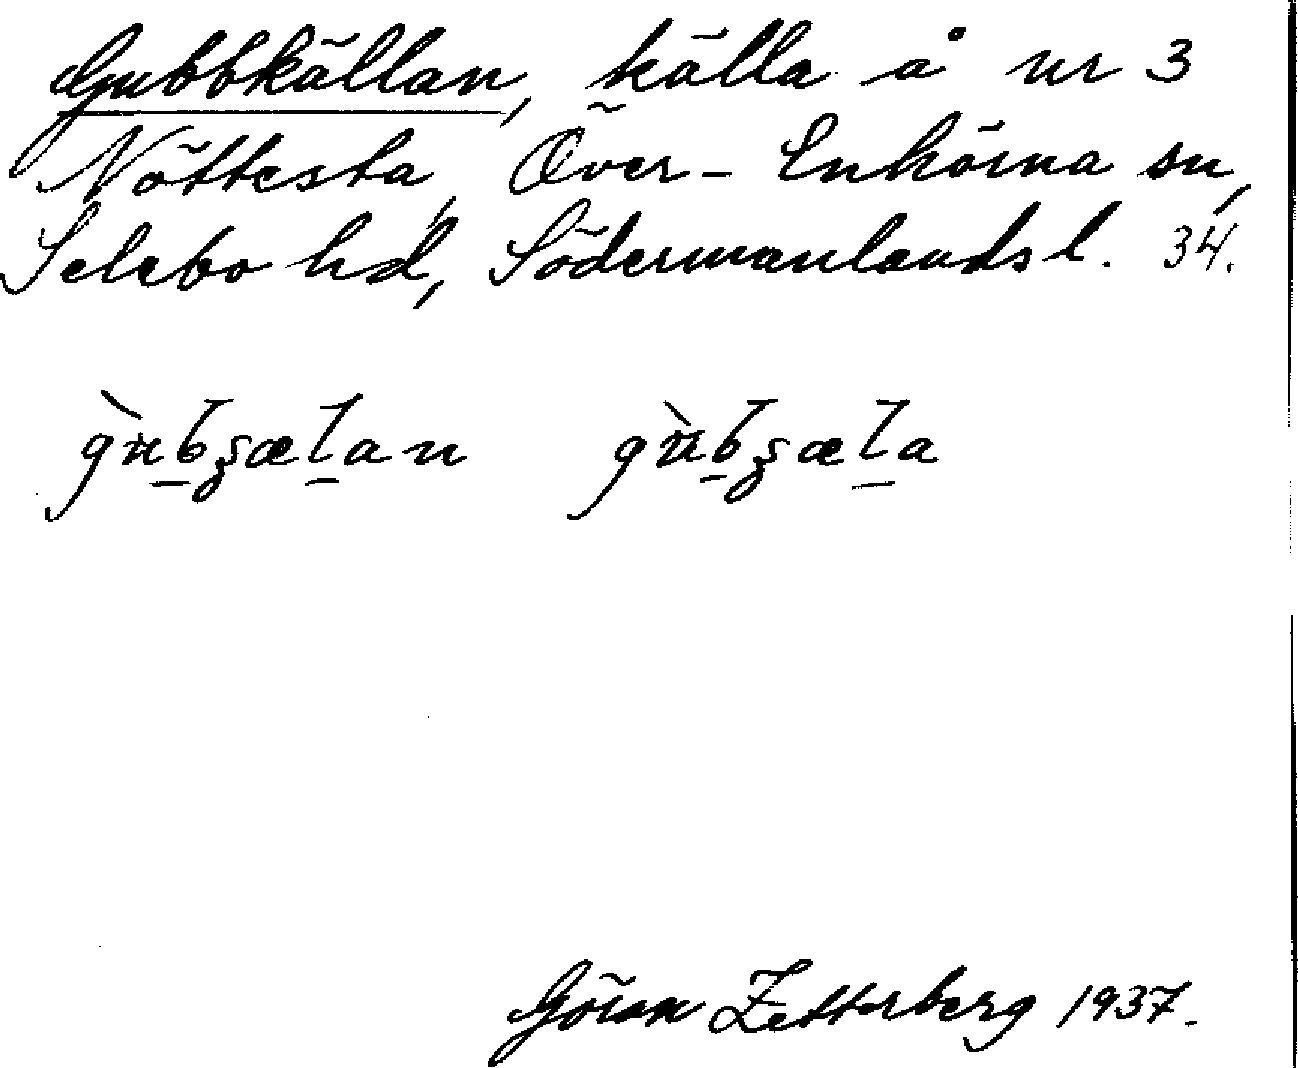 Gubbkällan, källa å nr 3
Nöttesta, Över-Enhörna sn,
Selebo hd, Södermanlands l. 34.
Göran Zetterberg 1937.